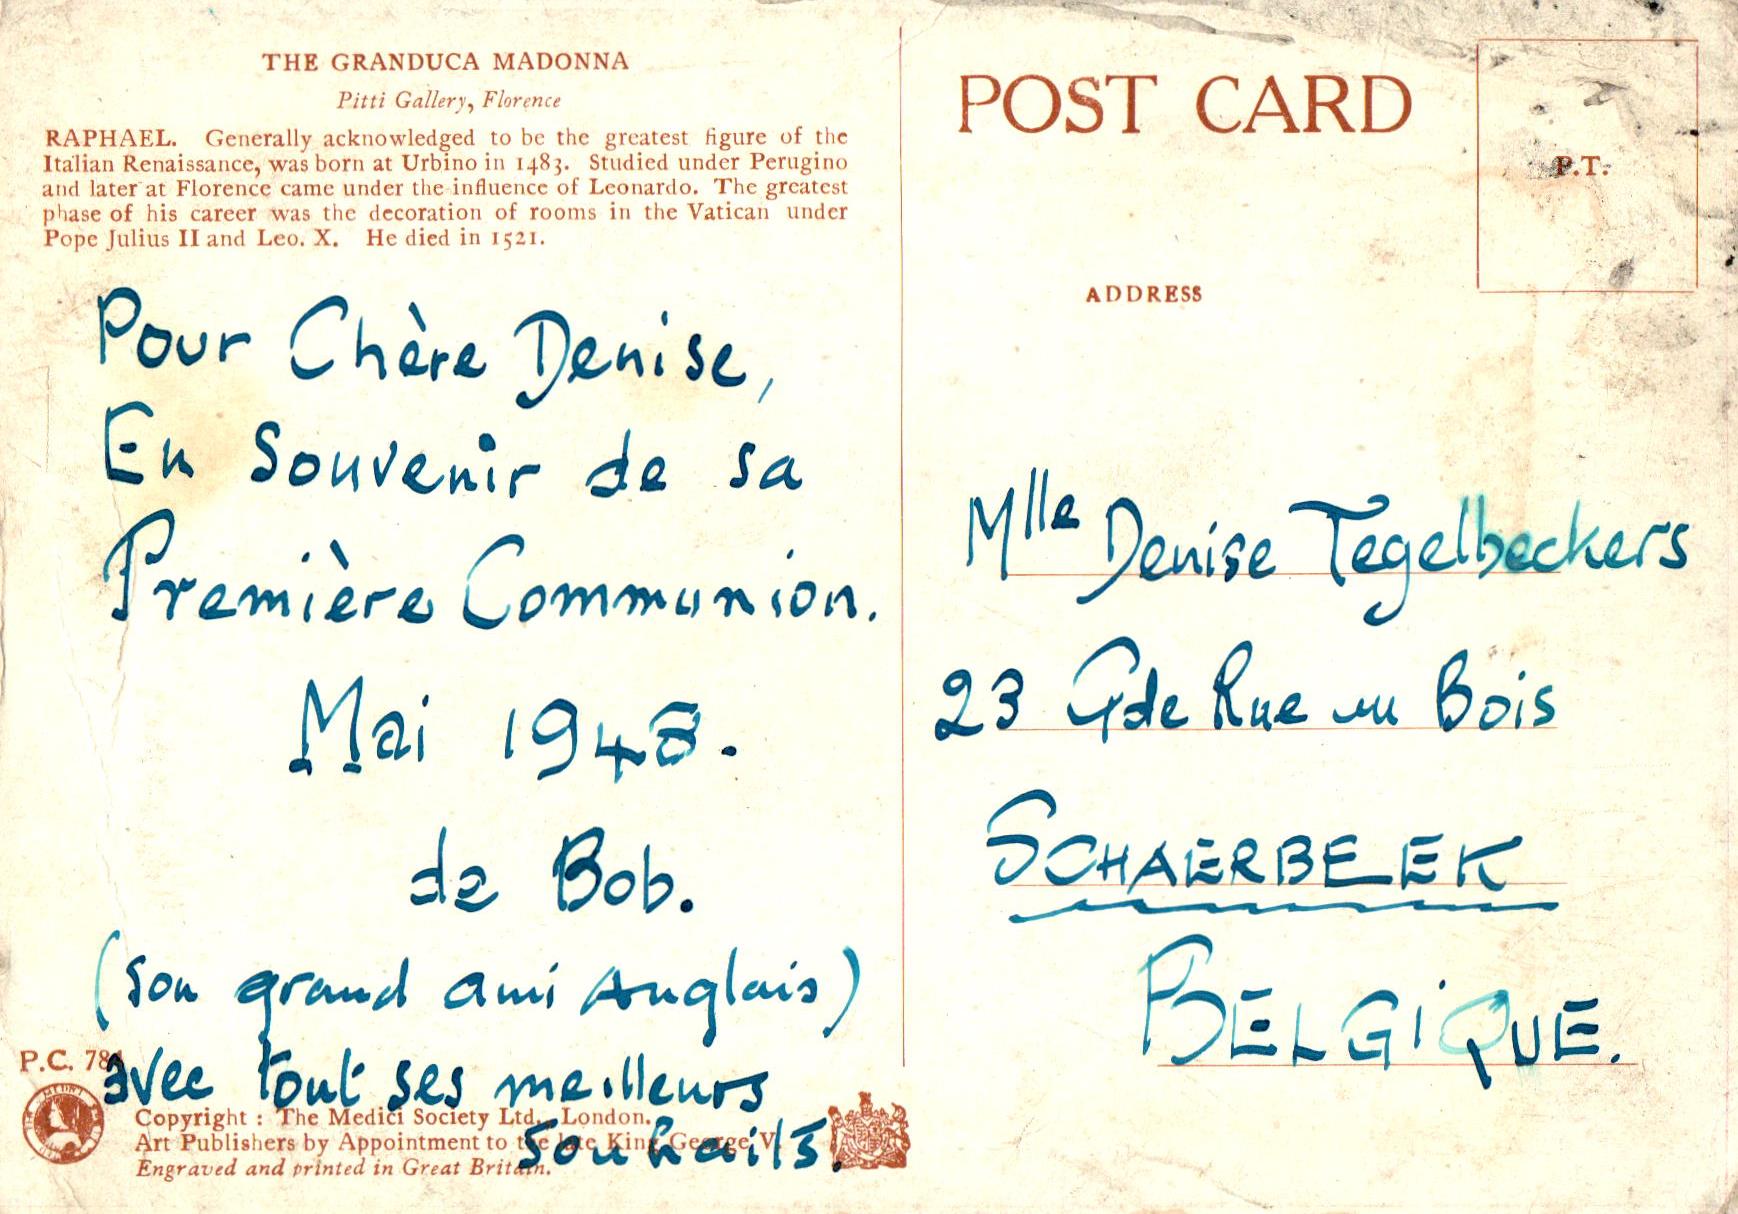 THE GRANDUCA MADONNA
Pitti Gallery, Florence
RAPHAEL. Generally acknowledged to be the greatest figure of the
Italian Renaissance, was born at Urbino in 1483. Studied under Perugino
and later at Florence came under the influence of Leonardo. The greatest
phase of his career was the decoration of rooms in the Vatican under
Pope Julius II and Leo. X. He died in 1521.
Pour Chère Denise,
En Souvenir de sa
Première Communion.
Mai 1948.
de Bob.
(son grand ami Anglais)
avec tout ses meilleurs
souhaits.
P.C. 78
Copyright : The Medici Society Ltd., London.
Art Publishers by Appointment to the late King George V.
Engraved and printed in Great Britain.
POST CARD
P.T.
ADDRESS
Mlle Denise Tegelbeckers
23 Gde Rue au Bois
SCHAERBEEK
BELGIQUE.